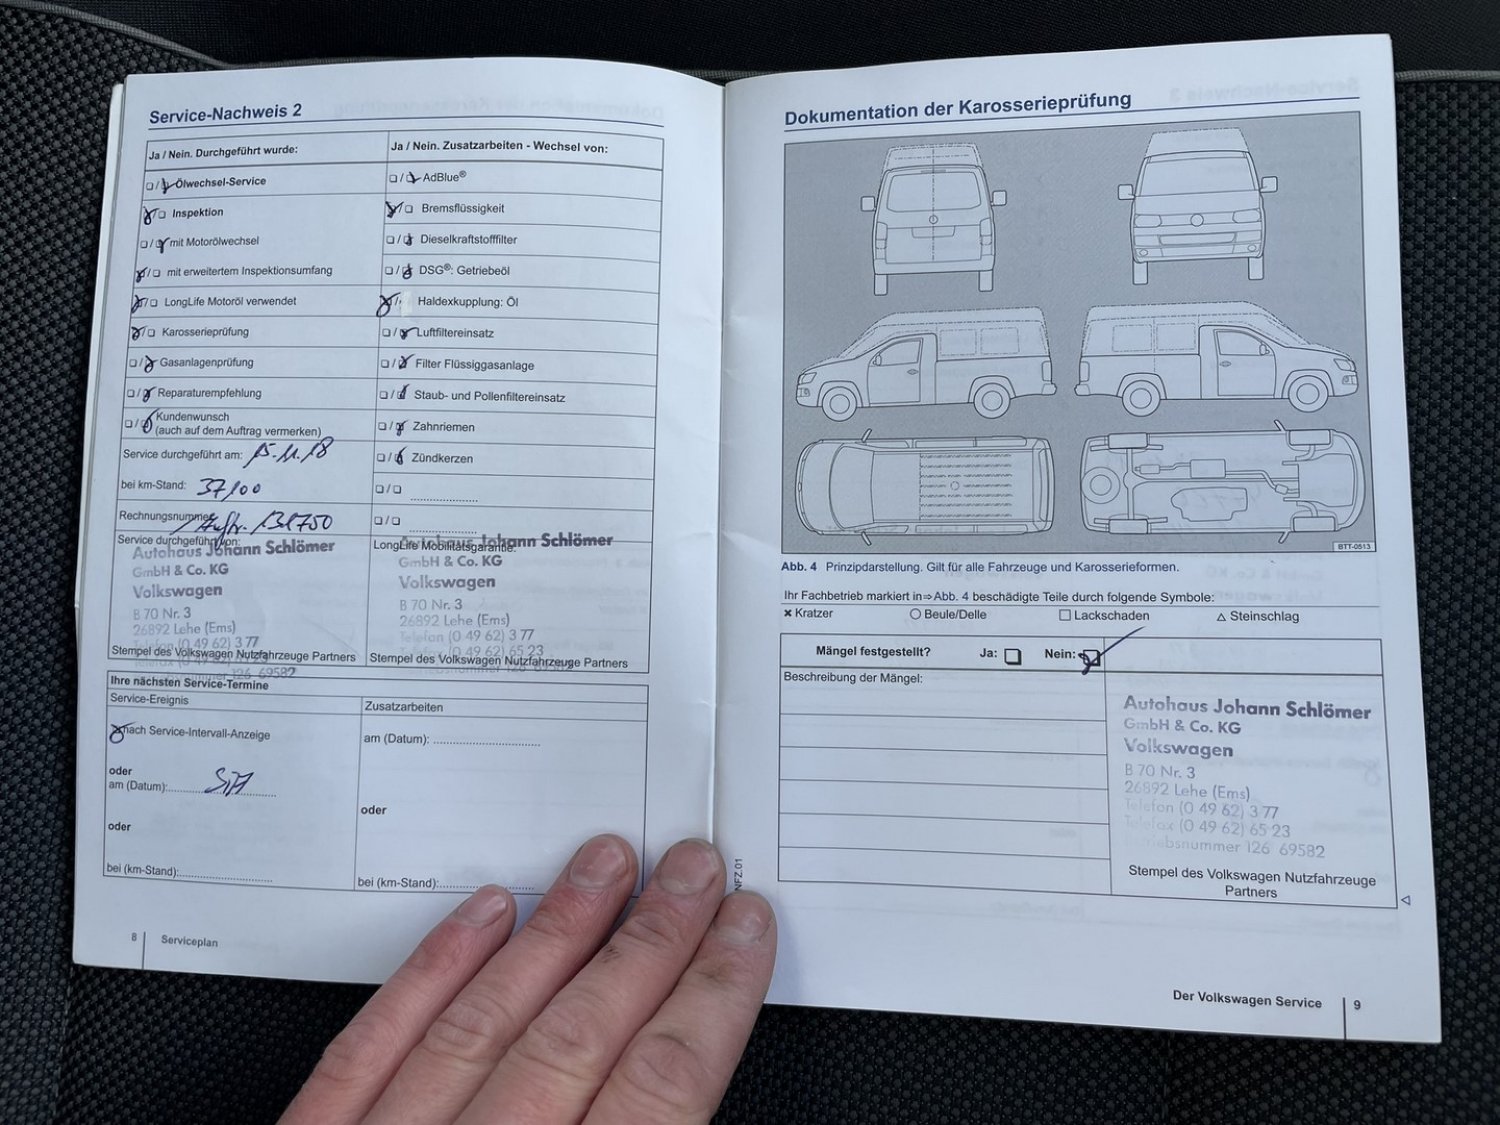 Service-Nachweis 2
Ja / Nein. Durchgeführt wurde:
Ölwechsel-Service
Inspektion
mit Motorölwechsel
mit erweitertem Inspektionsumfang
LongLife Motoröl verwendet
Karosserieprüfung
Gasanlagenprüfung
Reparaturempfehlung
Kundenwunsch
(auch auf dem Auftrag vermerken)
Service durchgeführt am: 15.11.18
bei km-Stand: 37100
Rechnungsnummer Auftr. 131750
Service durchgeführt von:
Autohaus Johann Schlömer
GmbH & Co. KG
Volkswagen
B 70 Nr. 3
26892 Lehe (Ems)
Telefon (0 49 62) 3 77
Stempel des Volkswagen Nutzfahrzeuge Partners
126 69582
Ja / Nein. Zusatzarbeiten - Wechsel von:
AdBlue®
Bremsflüssigkeit
Dieselkraftstofffilter
DSG®: Getriebeöl
Haldexkupplung: Öl
Luftfiltereinsatz
Filter Flüssiggasanlage
Staub- und Pollenfiltereinsatz
Zahnriemen
Zündkerzen
LongLife Mobilitätsgarantie:
Autohaus Johann Schlömer
GmbH & Co. KG
Volkswagen
B 70 Nr. 3
26892 Lehe (Ems)
Telefon (0 49 62) 3 77
Telefax (0 49 62) 65 23
Stempel des Volkswagen Nutzfahrzeuge Partners
Betriebsnummer 126 69582
Ihre nächsten Service-Termine
Service-Ereignis
nach Service-Intervall-Anzeige
oder
am (Datum):
oder
bei (km-Stand):
Zusatzarbeiten
am (Datum):
oder
bei (km-Stand):
8 Serviceplan
NFZ.01
Dokumentation der Karosserieprüfung
BTT-0513
Abb. 4 Prinzipdarstellung. Gilt für alle Fahrzeuge und Karosserieformen.
Ihr Fachbetrieb markiert in⇒Abb. 4 beschädigte Teile durch folgende Symbole:
× Kratzer ○ Beule/Delle □ Lackschaden △ Steinschlag
Mängel festgestellt? Ja: Nein:
Beschreibung der Mängel:
Autohaus Johann Schlömer
GmbH & Co. KG
Volkswagen
B 70 Nr. 3
26892 Lehe (Ems)
Telefon (0 49 62) 3 77
Telefax (0 49 62) 65 23
Betriebsnummer 126 69582
Stempel des Volkswagen Nutzfahrzeuge
Partners
Der Volkswagen Service 9